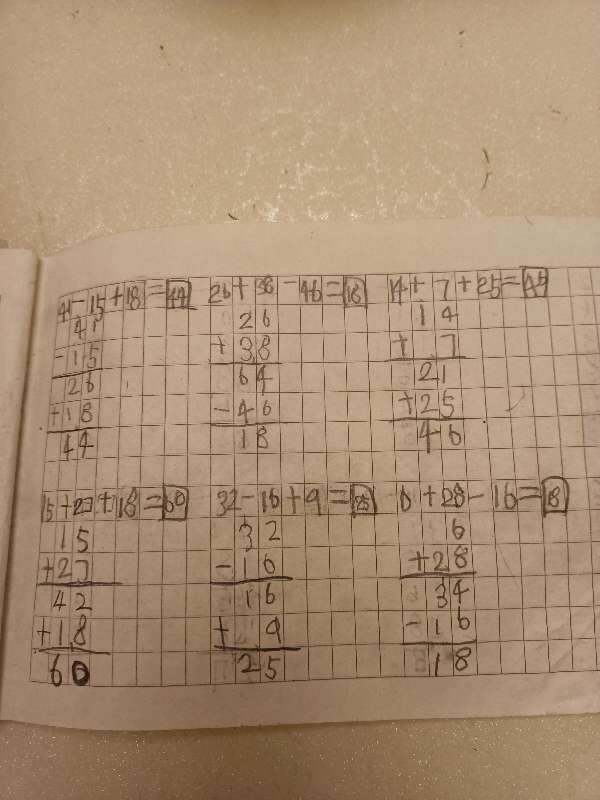 41-15+18=44
41
-15
26
+18
44
26+38-46=18
26
+38
64
-46
18
14+7+25=46
14
+7
21
+25
46
15+27+18=60
15
+27
42
+18
60
32-16+9=25
32
-16
16
+9
25
6+28-16=18
6
+28
34
-16
18